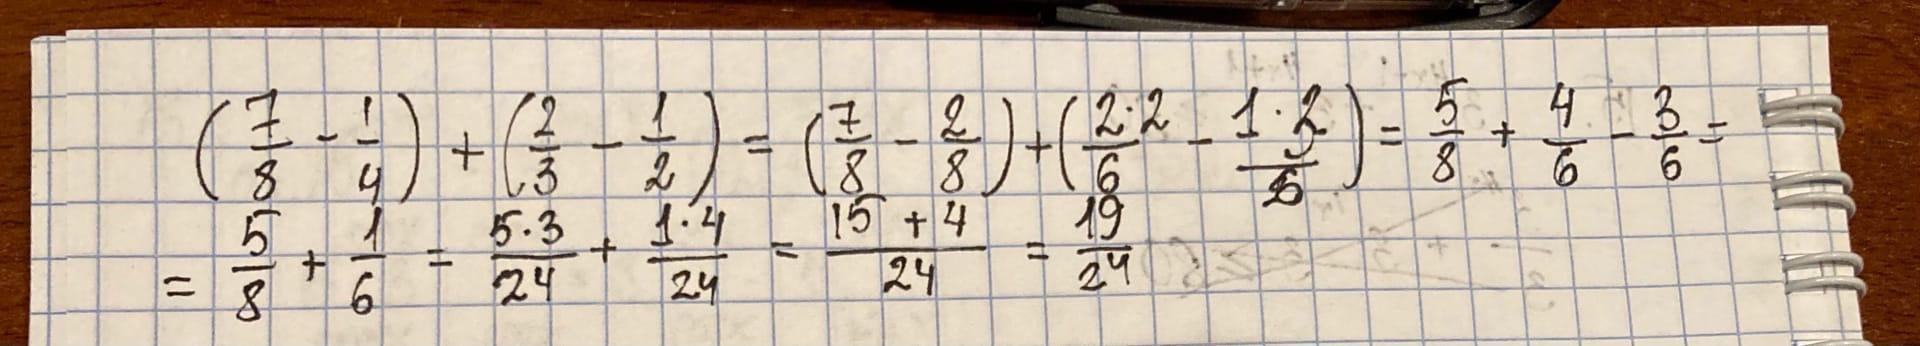 (7/8 - 1/4) + (2/3 - 1/2) = (7/8 - 2/8) + (2·2/6 - 1·3/6) = 5/8 + 4/6 - 3/6 =
= 5/8 + 1/6 = 5·3/24 + 1·4/24 = 15 + 4/24 = 19/24